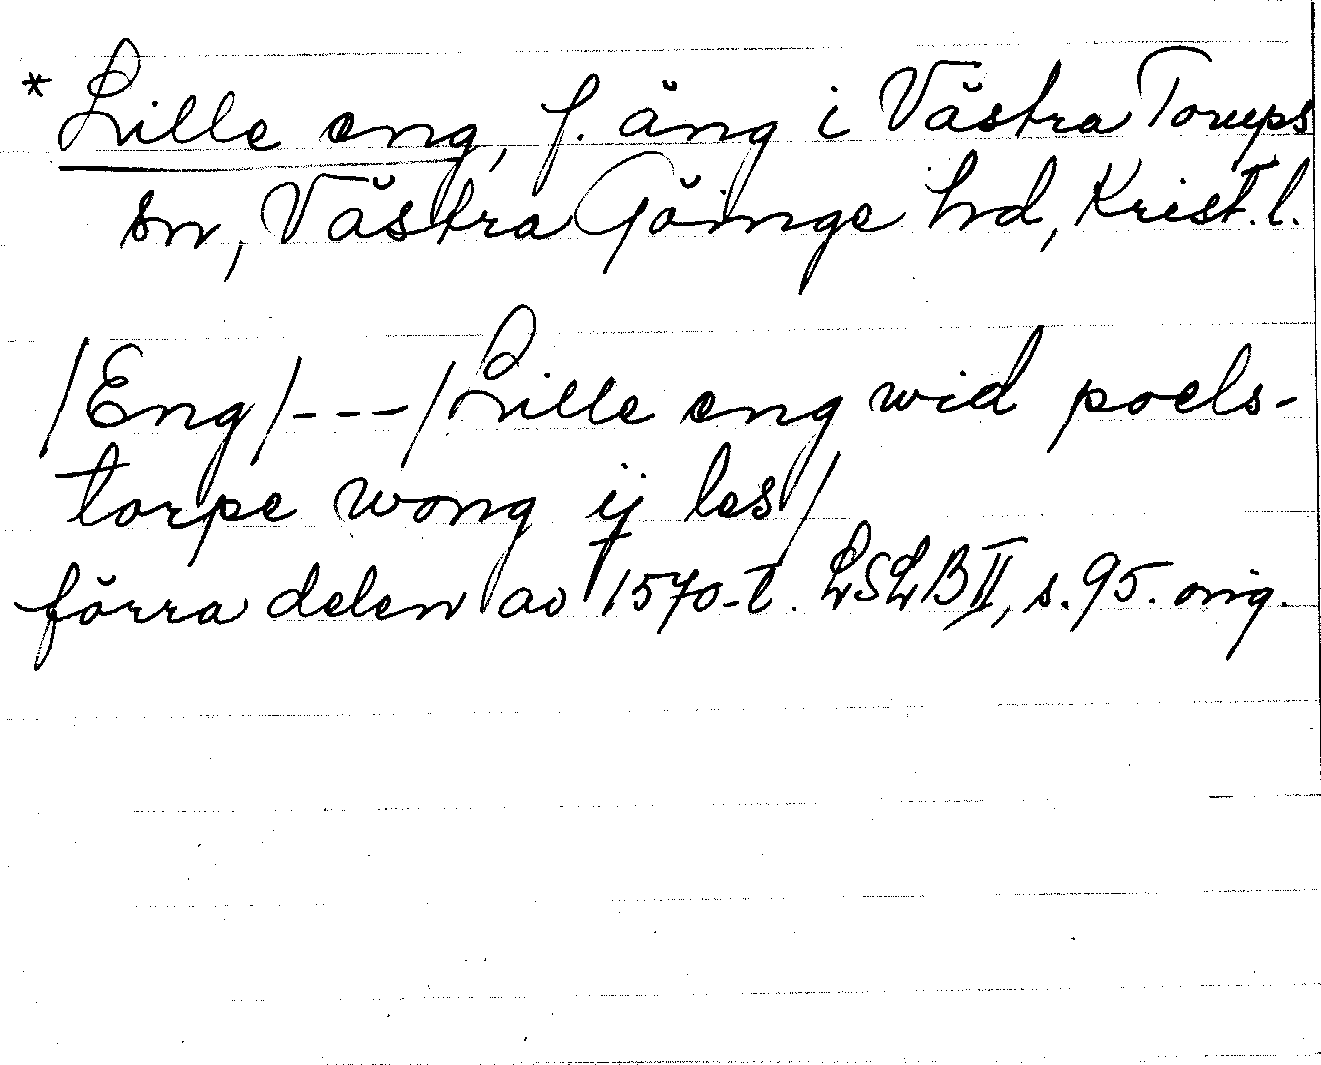 * Lille eng, f. äng i Västra Torups
sn, Västra Göinge hd, Krist. l.
/Eng/---/Lille eng wid poels-
torpe wong ij les/
förra delen av 1570-t. LSLB II, s. 95. orig.